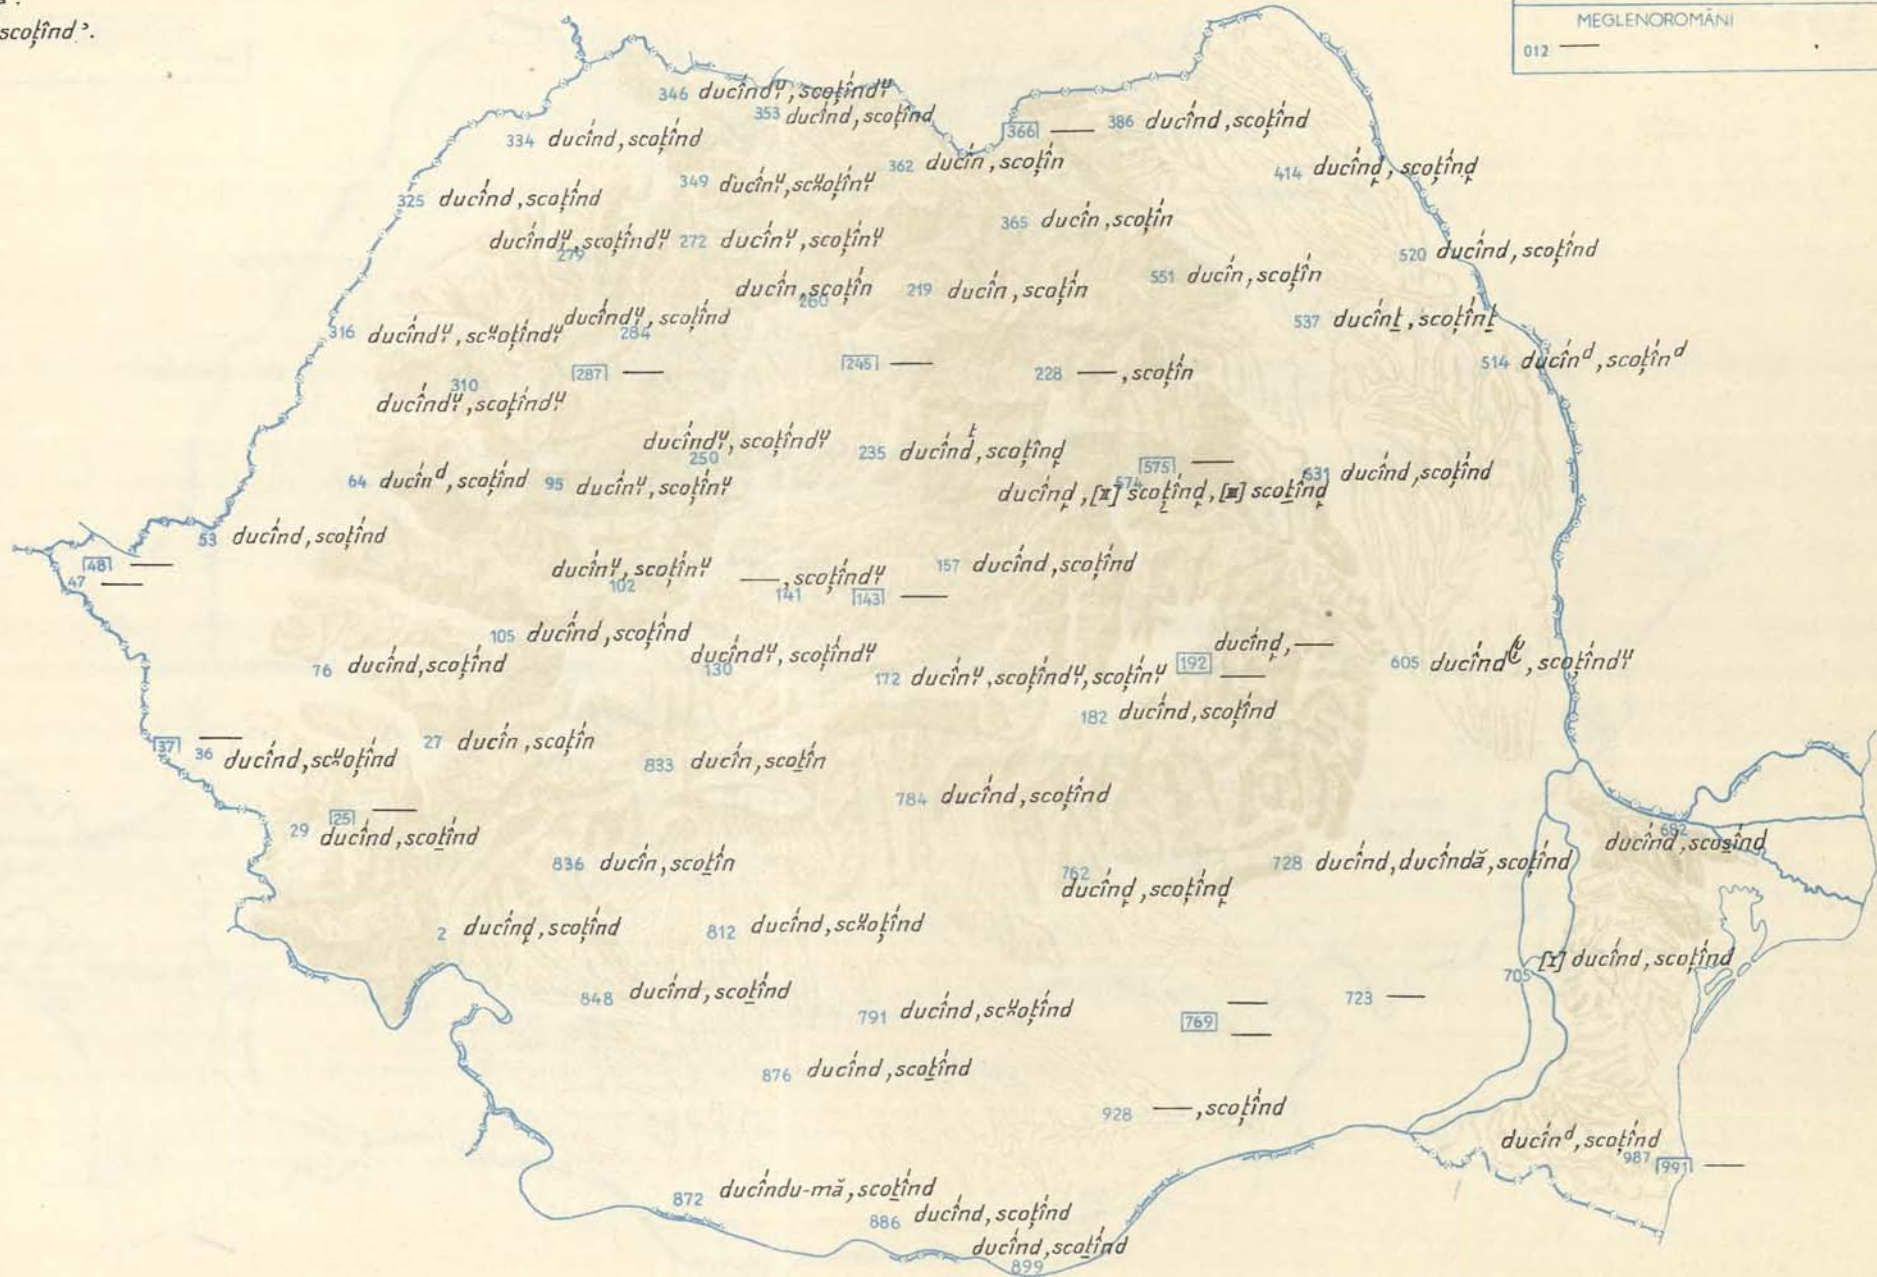 scoțînd ’.
MEGLENOROMÂNI
012 —
346 ducî́ndᶶ, scoțî́ndᶶ
353 ducî́nd, scoțî́nd
334 ducî́nd, scoțî́nd
366 —
386 ducî́nd, scoțî́nd
362 ducî́n, scoțî́n
414 ducî́nd̦, scoțî́nd̦
349 ducî́nᶶ, scᶶoțî́nᶶ
325 ducî́nd, scoțî́nd
365 ducî́n, scoțî́n
279 ducî́ndᶶ, scoțî́ndᶶ
272 ducî́nᶶ, scoțî́nᶶ
520 ducî́nd, scoțî́nd
260 ducî́n, scoțî́n
219 ducî́n, scoțî́n
551 ducî́n, scoțî́n
284 ducî́ndᶶ, scoțî́nd
537 ducî́nṯ, scoțî́nṯ
316 ducî́ndᶶ, scᶶoțî́ndᶶ
514 ducî́nᵈ, scoțî́nᵈ
287 —
245 —
228 —, scoțî́n
310 ducî́ndᶶ, scoțî́ndᶶ
250 ducî́ndᶶ, scoțî́ndᶶ
235 ducî́nd, scoțî́nd̦
575 —
574 ducî́nd̦, [II] scoțî́nd̦, [III] scoṯî́nd̦
631 ducî́nd, scoțî́nd
64 ducî́nᵈ, scoțî́nd
95 ducî́nᶶ, scoțî́nᶶ
53 ducî́nd, scoțî́nd
48 —
47 —
102 ducî́nᶶ, scoțî́nᶶ
141 —, scoțî́ndᶶ
143 —
157 ducî́nd, scoțî́nd
105 ducî́nd, scoțî́nd
130 ducî́ndᶶ, scoțî́ndᶶ
76 ducî́nd, scoțî́nd
172 ducî́nᶶ, scoțî́ndᶶ, scoțî́nᶶ
ducî́nd̦, —
192 —
605 ducî́nd⁽ᶶ, scoțî́ndᶶ
182 ducî́nd, scoțî́nd
37 —
36 ducî́nd, scᶶoțî́nd
27 ducî́n, scoțî́n
833 ducî́n, scoṯî́n
784 ducî́nd, scoțî́nd
25 —
29 ducî́nd, scoṯî́nd
836 ducî́n, scoṯî́n
762 ducî́nd̦, scoțî́nd̦
728 ducî́nd, ducî́ndă, scoțî́nd
682 ducî́nd, scos̱î́nd
2 ducî́nd̦, scoțî́nd
812 ducî́nd, scᶶoțî́nd
705 [I] ducî́nd, scoțî́nd
848 ducî́nd, scoṯî́nd
791 ducî́nd, scᶶoțî́nd
769 —
—
723 —
876 ducî́nd, scoṯî́nd
928 —, scoțî́nd
987 ducî́nᵈ, scoțî́nd
991 —
872 ducî́ndu-mă, scoṯî́nd
886 ducî́nd, scoțî́nd
899 ducî́nd, scoṯî́nd